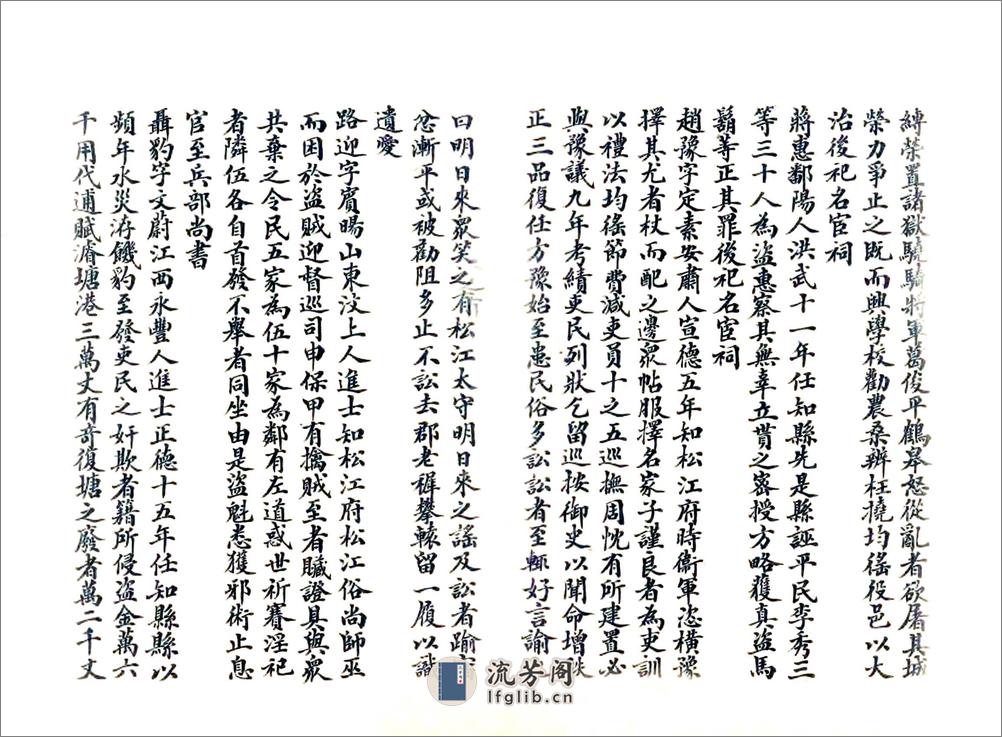 縛榮置諸獄驍騎將軍葛俊平鶴皋怒從亂者欲屠其城
榮力爭止之既而興學校勸農桑辨枉撓均徭役邑以大
治後祀名宦祠
蔣惠鄱陽人洪武十一年任知縣先是縣誣平民李秀三
等三十人為盜惠察其無辜立貰之密授方略獲真盜馬
鬍等正其罪後祀名宦祠
趙豫字定素安肅人宣德五年知松江府時衞軍恣橫豫
擇其尤者杖而配之邊衆帖服擇名家子謹良者為吏訓
以禮法均徭節費減吏員十之五巡撫周忱有所建置必
與豫議九年考績吏民列狀乞留巡按御史以聞命增秩
正三品復任方豫始至患民俗多訟訟者至輒好言諭
曰明日來眾笑之有松江太守明日來之謠及訟者踰
忿漸平或被勸阻多止不訟去郡老穉攀轅留一履以識
遺愛
路迎字賓暘山東汶上人進士知松江府松江俗尚師巫
而困於盜賊迎督巡司申保甲有擒賊至者贓證具與眾
共棄之令民五家為伍十家為鄰有左道惑世祈賽淫祀
者隣伍各自首發不舉者同坐由是盜魁悉獲邪術止息
官至兵部尚書
聶豹字文蔚江西永豐人進士正德十五年任知縣縣以
頻年水災洊饑豹至發吏民之奸欺者籍所侵盜金萬六
千用代逋賦濬塘港三萬丈有奇復塘之廢者萬二千丈
流芳阁
lfglib.cn